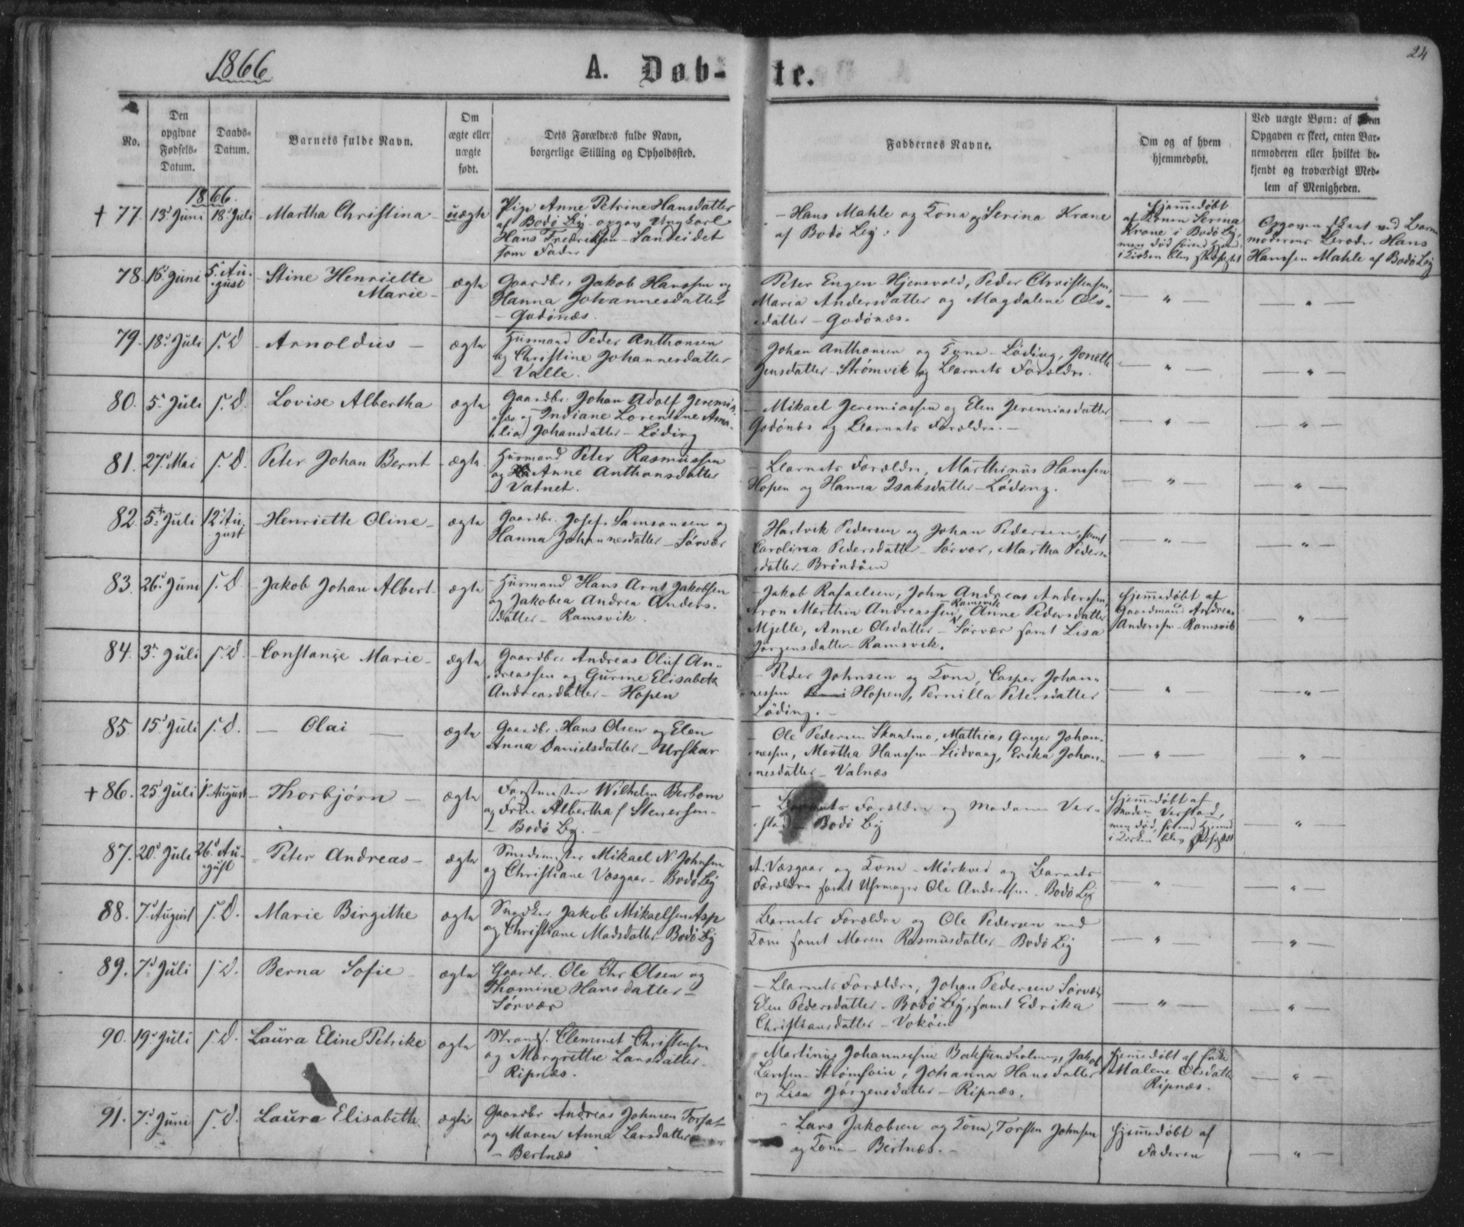 1866
A. Døbte.
24
No.
Den opgivne Fødsels-Datum.
Daabs-Datum.
Barnets fulde Navn.
Om ægte eller uægte født.
Dets Forældres fulde Navn, borgerlige Stilling og Opholdssted.
Faddernes Navne.
Om og af hvem hjemmedøbt.
Ved uægte Børn: af hvem Opgaven er skeet, enten Barnemoderen eller hvilket bekjendt og troværdigt Medlem af Menigheden.
1866.
+ 77. 13de Juni 18de Juli Martha Christina uægte
Pige Anne Petrine Hansdatter
af Bodø By opgav Ungkarl
Hans Fredriksen Landeidet
som Fader
- Hans Mahle og Kone og Serina Krane
af Bodø By.
Hjemmedøbt
Krane i Bodø By,
Opgaven skeet ved Barne-
moderens Broder Hans
Hanssen Mahle af Bodø By
78. 16de Juni 5te Au-
gust
Stine Henriette
Marie - ægte
Gaardbr. Jakob Hanssen og
Hanna Johannesdatter
- Godønæs.
Peter Enger Hjernvold, Peder Christensen,
Maria Andersdatter og Magdalene Ols-
datter - Godønæs.
— " —
79. 18de Juli s. D. - Arnoldus - ægte
Husmand Peder Anthonsen
og Christine Johannesdatter
- Valle.
Johan Anthonsen og Kone - Løding, Jonette
Jensdatter - Strømvik og Barnets Forældre.
— " —
80. 5te Juli s. D. Lovise Albertha ægte
Gaardbr. Johan Adolf Jeremia-
sen og Indiane Lorentine Ama-
lia Johansdatter - Løding
- Mikael Jeremiassen og Elen Jeremiasdatter
Godønæs og Barnets Forældre. -
— " —
81. 27de Mai s. D. Peter Johan Bernt ægte
Husmand Peter Rasmussen
og Anne Anthonsdatter
Vatnet.
- Barnets Forældre, Marthinus Hanssen
Hopen og Hanna Isaksdatter - Løding.
— " —
82. 5te Juli 12te Au-
gust
- Henriette Oline - ægte
Gaardbr. Josef Samsonsen og
Hanna Johannesdatter - Sørvær
Hartvik Pedersen og Johan Pedersen, samt
Carolina Pedersdatter Sørvær, Martha Peders-
datter - Brøndøen
— " —
83. 26de Juni s. D. Jakob Johan Albert ægte
Husmand Hans Arnt Jakobsen
og Jakobea Andrea Anders-
datter - Ramsvik.
- Jakob Rafaelsen, John Andreas Andersen,
Aron Marthin Andreassen Ramsvik, Anne Pedersdatter
Mjelle, Anne Olsdatter - Sørvær samt Lisa
Jørgensdatter - Ramsvik.
Hjemmedøbt af
Gaardmand Andreas
Anderssen - Ramsvik
— " —
84. 3de Juli s. D. - Constance Marie - ægte
Gaardbr. Andreas Oluf An-
dreassen og Gurine Elisabeth
Andreasdatter - Hopen
- Peder Johnsen og Kone, Casper Johan-
nessen Hopen, Pernilla Petersdatter
Løding. -
— " —
85. 15de Juli s. D. — Olai — ægte
Gaardbr. Hans Olsen og Elen
Anna Danielsdatter - Urskar
- Ole Pedersen Skaalmo, Mathias Greger Johan-
nessen, Mertha Hanssen - Seivaag, Erika Johan-
nesdatter - Valnæs
— " —
+ 86. 25de Juli 1ste August - Thorbjørn - ægte
Forstmester Wilhelm Berbom
og Fru Albertha f. Stenersen
- Bodø By. -
- Barnets Forældre og Madame Ver-
- Bodø By
Hjemmedøbt af
Madm. Verstad,
— " —
87. 20de Juli 26de Au-
gust
- Peter Andreas - ægte
Smedemester Mikael N. Johnsen
og Christiane Vosgaar - Bodø By
A. Vosgaar og Kone - Mørkved og Barnets
Forældre samt Uhrmager Ole Anderssen - Bodø By
— " —
88. 7de August s. D. Marie Birgithe ægte
Snedker Jakob Mikaelsen Asp
og Christiane Madsdatter - Bodø By
Barnets Forældre og Ole Pedersen med
Kone samt Maren Rasmusdatter - Bodø By
— " —
89. 7de Juli s. D. Berna Sofie - ægte
Gaardbr. Ole Chr. Olsen og
Thomine Hansdatter -
Sørvær
- Barnets Forældre, Johan Pedersen Sørvær,
Elen Pedersdatter - Bodø By samt Edvika
Christiansdatter - Vokøen
— " —
90. 19de Juli s. D. Laura Eline Petrike ægte
Strands. Clemmet Christensen
og Margrethe Larsdatter -
Ripnæs.
Martinus Johannessen Baksundholmen, Jakob
Larssen - Strømsøien, Johanna Hansdatter
og Lisa Jørgensdatter - Ripnæs.
Hjemmedøbt af Enke
Malene Olsdatter
Ripnæs.
— " —
91. 7de Juni s. D. Laura Elisabeth ægte
Gaardbr. Andreas Johnsen Torsæt
og Maren Anna Larsdatter
- Bertnæs
- Lars Jakobsen og Kone, Torsten Johnsen
og Kone - Bertnæs. -
Hjemmedøbt af
Faderen
— " —